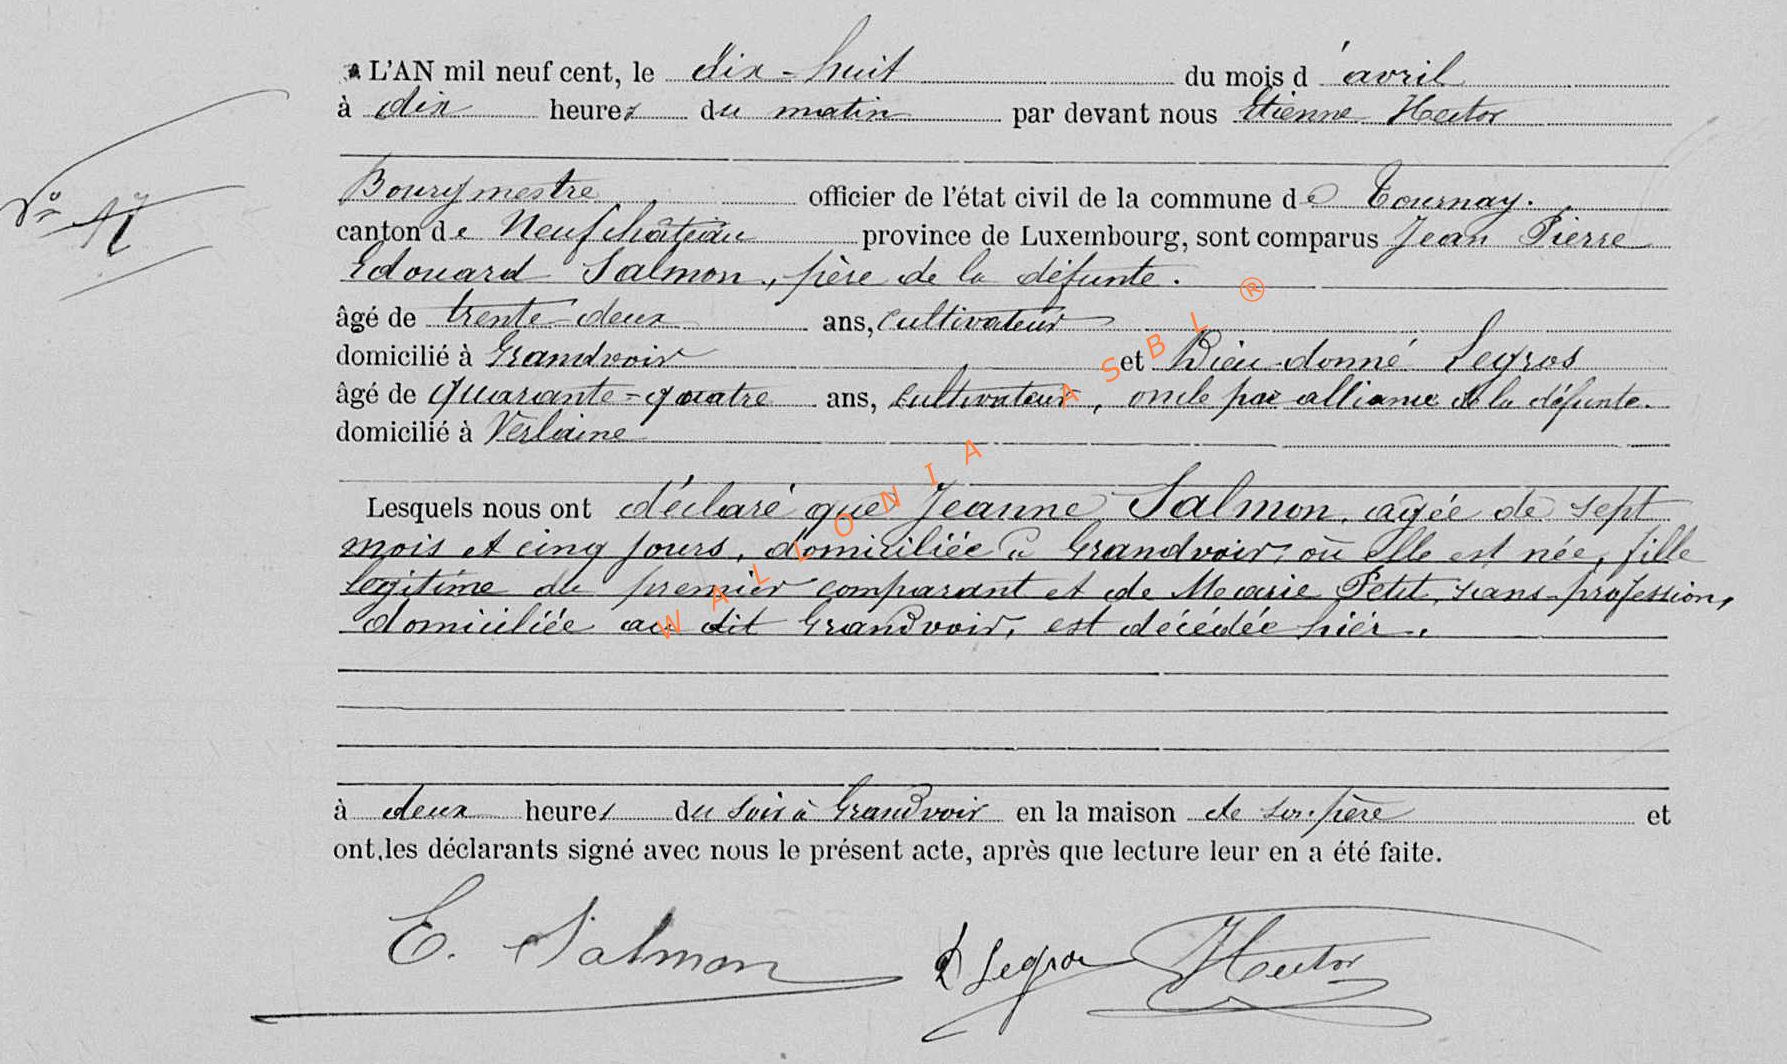 L'AN mil neuf cent, le dix-huit du mois d'avril
à dix heures du matin par devant nous Etienne Hector
N° 17
Bourgmestre officier de l'état civil de la commune de Tournay.
canton de Neufchâteau province de Luxembourg, sont comparus Jean Pierre
Edouard Salmon, père de la défunte.
âgé de trente-deux ans, cultivateur
domicilié à Grandvoir et Dieu-donné Legros
âgé de quarante-quatre ans, cultivateur, oncle par alliance de la défunte.
domicilié à Verlaine
Lesquels nous ont déclaré que Jeanne Salmon, agée de sept
mois et cinq jours, domiciliée à Grandvoir, où elle est née, fille
légitime du premier comparant et de Marie Petit, sans profession,
domiciliée au dit Grandvoir, est décédée hier.
à deux heures du soir à Grandvoir en la maison de son père et
ont les déclarants signé avec nous le présent acte, après que lecture leur en a été faite.
E. Salmon D Legros Hector
WALLONIA ASBL ®